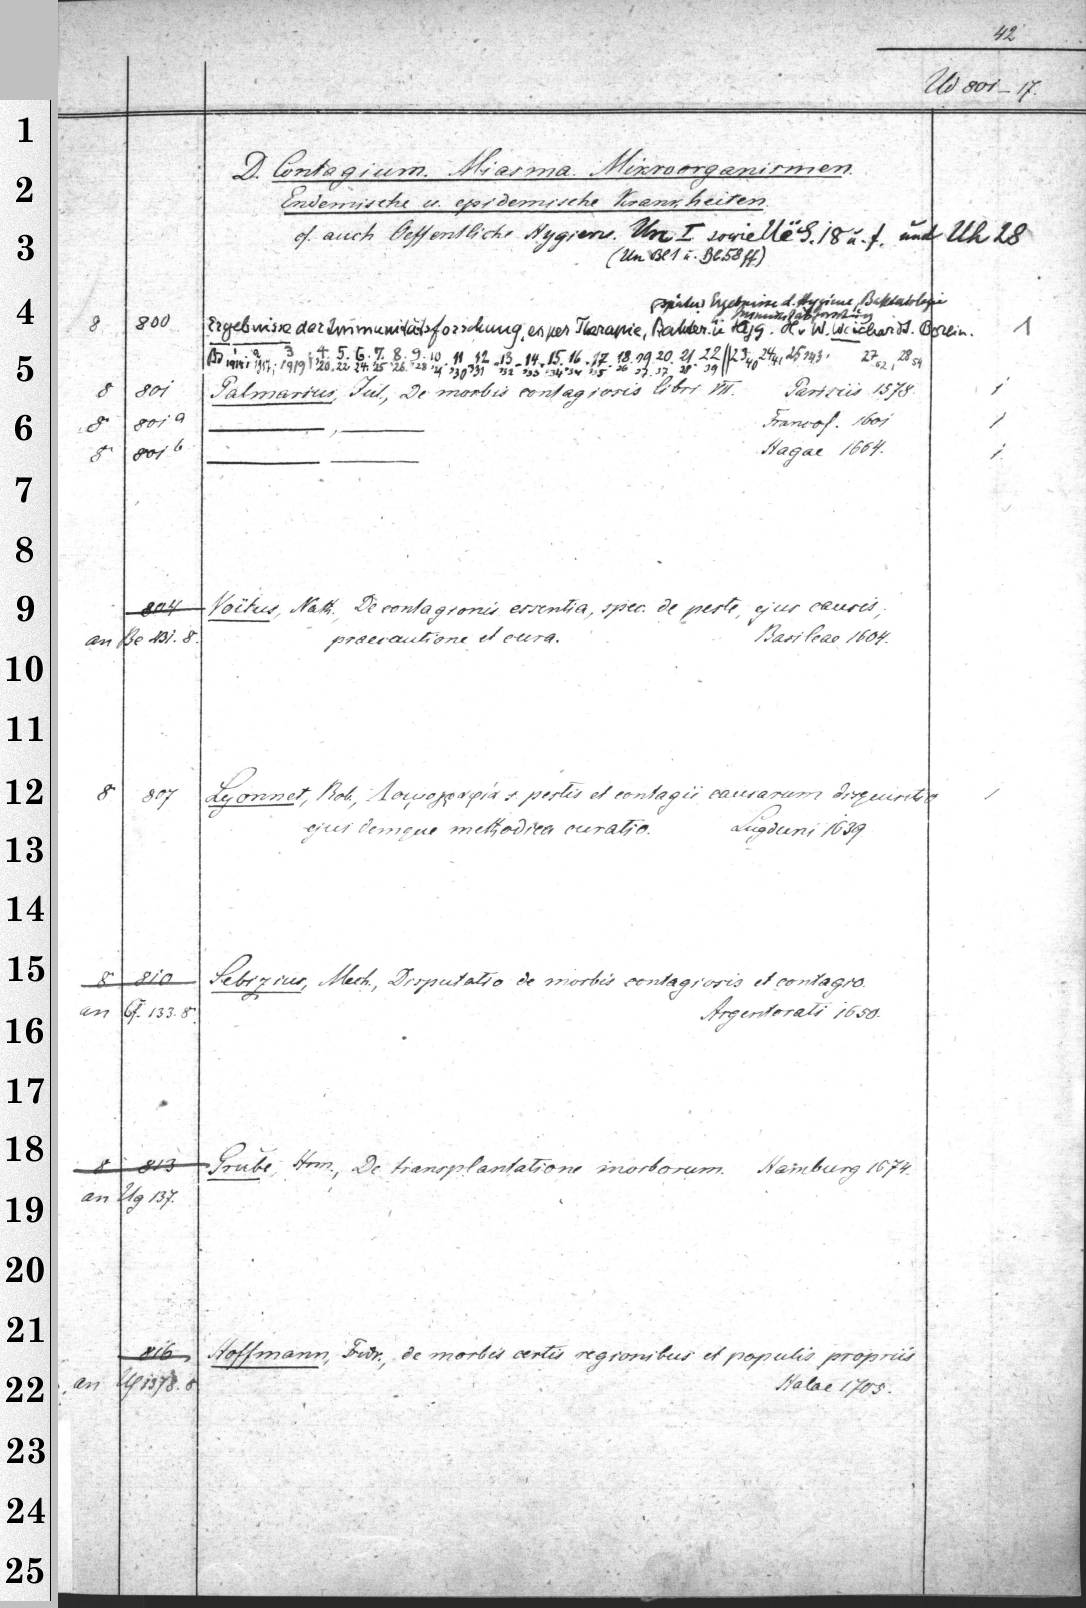 42
Ud 801–17.
D. Contagium. Miasma. Mikroorganismen.
Endemische u. epidemische Krankheiten.
cf. auch Oeffentliche Hygiene. Un I sowie Ue S. 18 u. f. und Uh 28
(Un Bl 1 u. Bl 58 ff)
(später Ergebnisse d. Hygiene, Bakteriologie
Immunitätsforschung
8 800 Ergebnisse der Immunitätsforschung, exper. Therapie, Bakter. u. Hyg. H. v. W. Weichardt. Berlin. 1
Bd 1 1914; 2 1917; 3 1919; 4. 5. 6. 7. 8. 9. 10. 11. 12. 13. 14. 15. 16. 17. 18. 19. 20. 21. 22 || 23 24 25 27 28
8 801 Palmarius, Jul., De morbis contagiosis libri VII. Parisiis 1578. 1
8 801 a ———, ——— Francof. 1601 1
8 801 b ——— ——— Hagae 1664. 1
804 Voïtus, Nath., De contagionis essentia, spec. de peste, ejus causis,
an Be 431. 8. praecautione et cura. Basileae 1604.
8 807 Lyonnet, Rob., Λοιμογραφία s. pestis et contagii causarum disquisitio 1
ejusdemque methodica curatio. Lugduni 1639
8 810 Sebizius, Melch., Disputatio de morbis contagiosis et contagio.
an 133. 8. Argentorati 1650.
8 813 Grube, Hrm., De transplantatione morborum. Hamburg 1674.
an Ug 137.
816 Hoffmann, Frdr., de morbis certis regionibus et populis propriis
an Uf 1378. 8 Halae 1705.
1
2
3
4
5
6
7
8
9
10
11
12
13
14
15
16
17
18
19
20
21
22
23
24
25